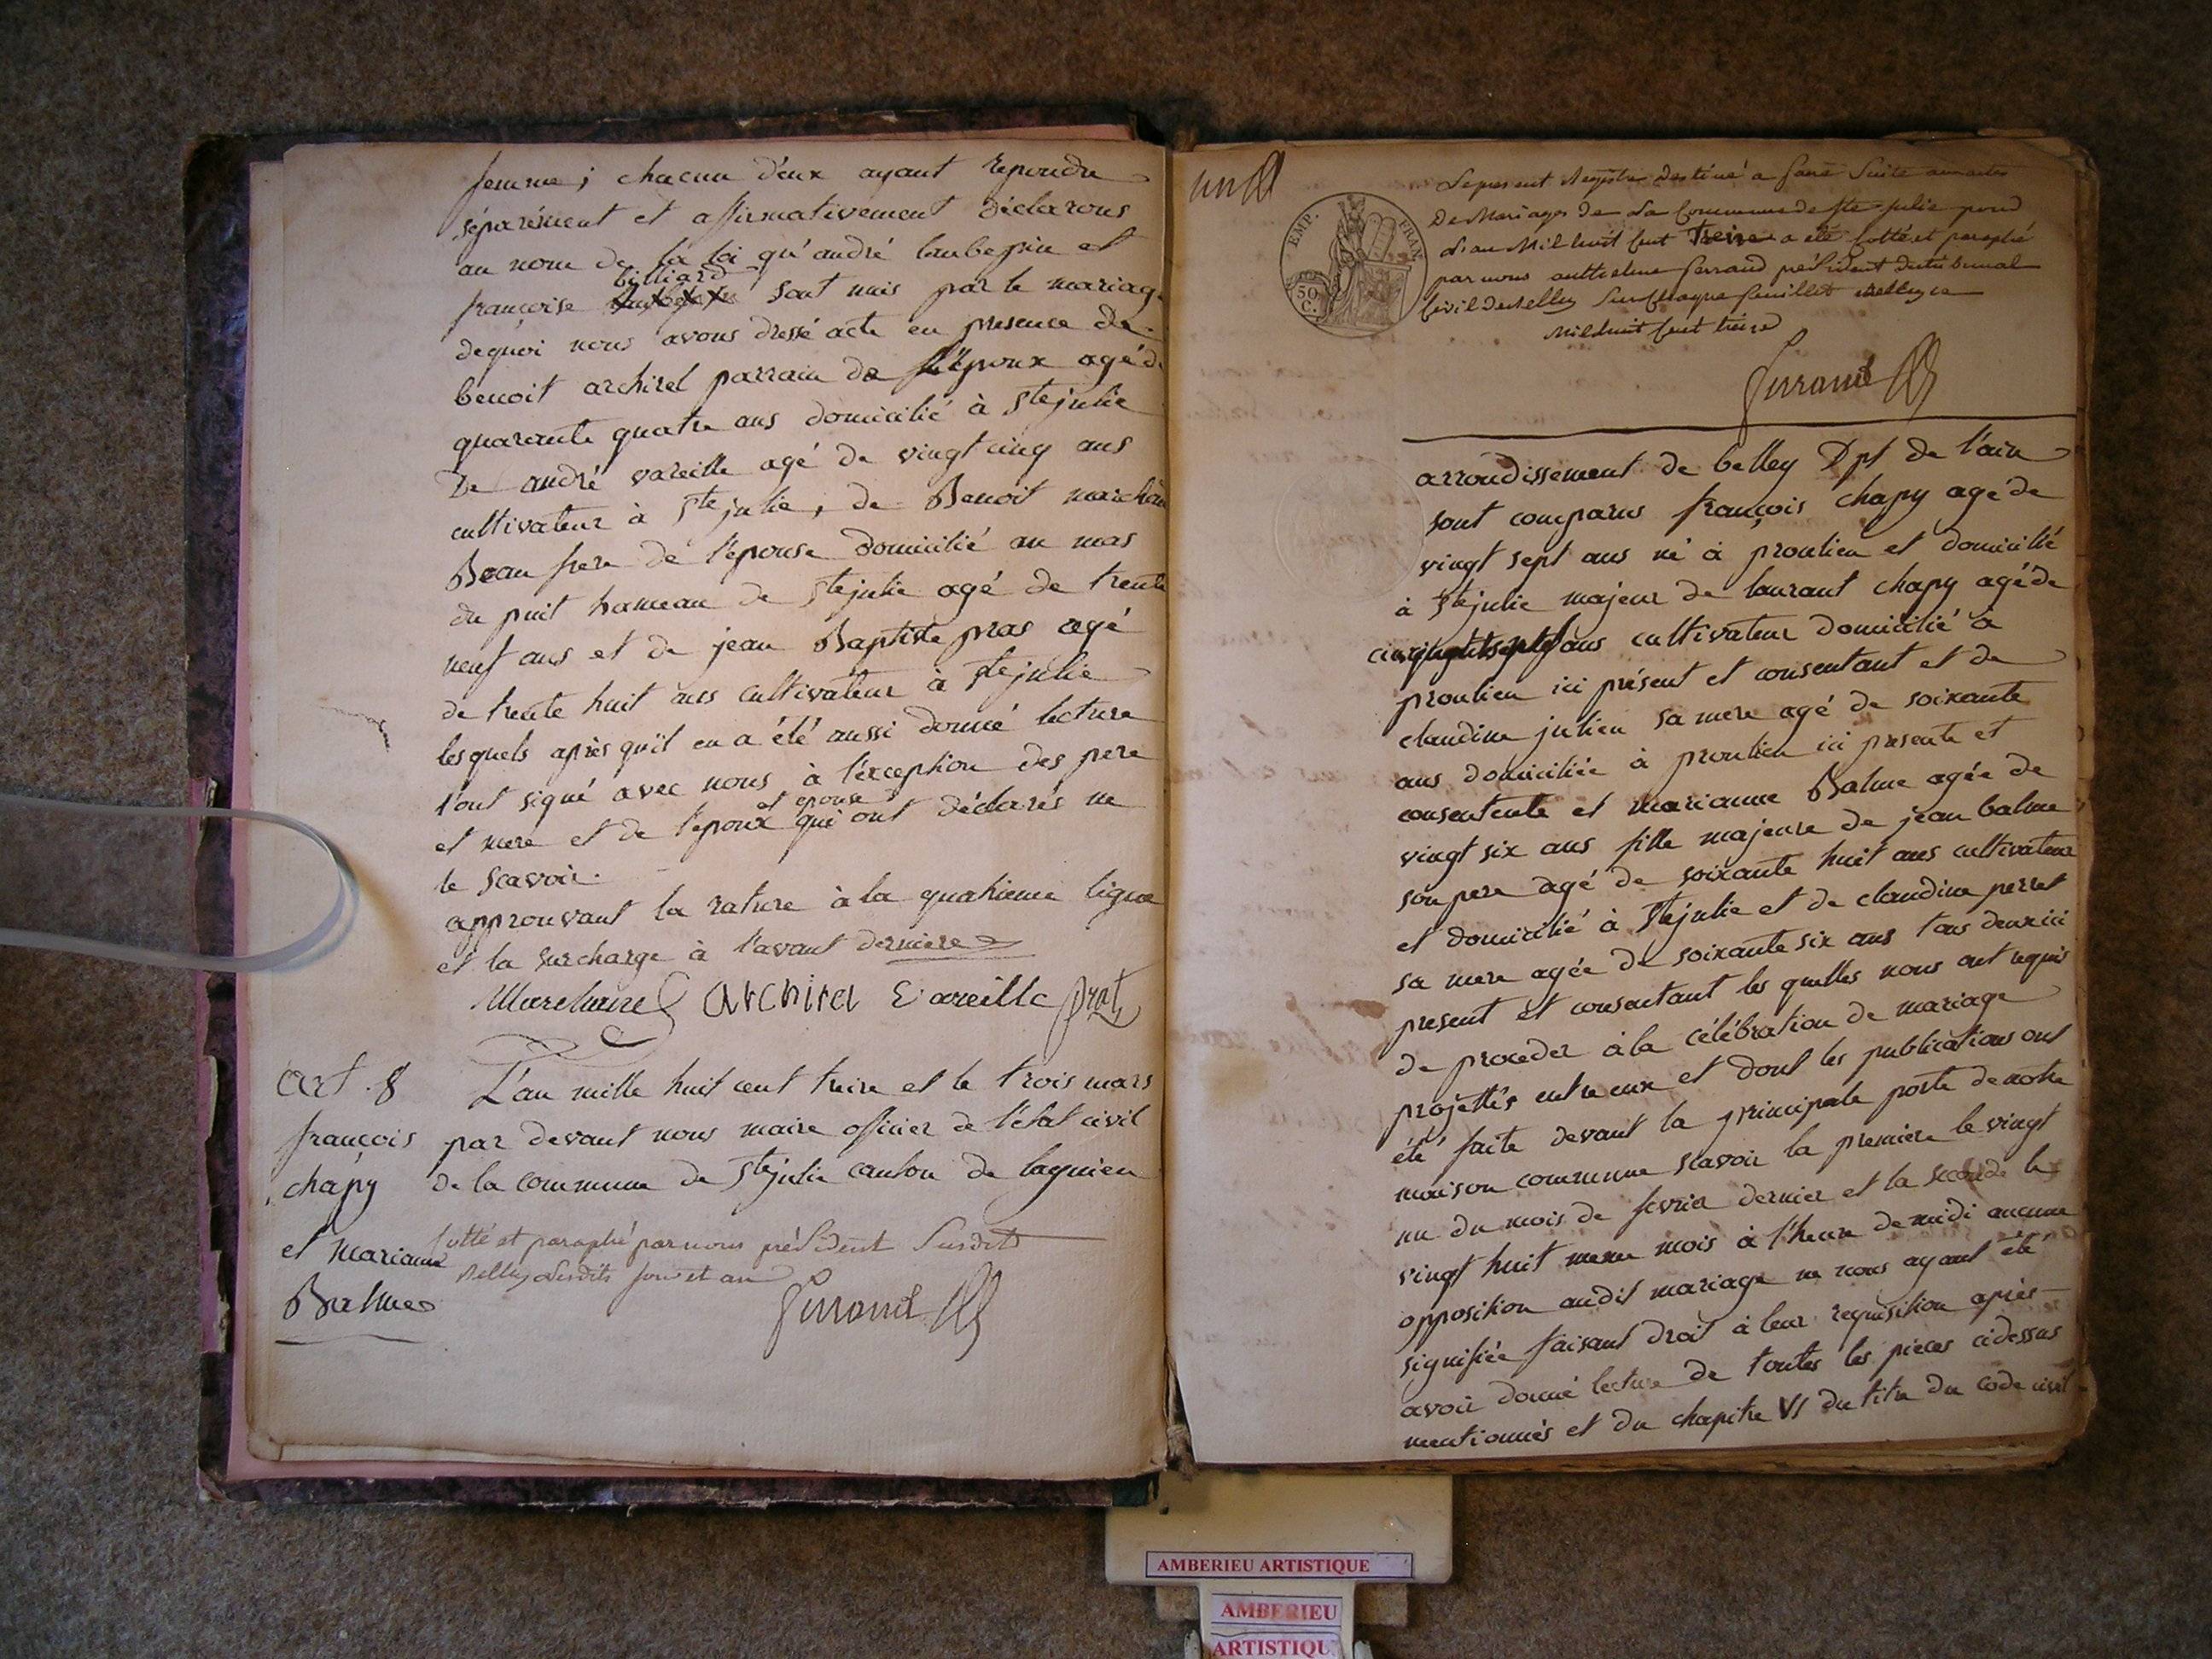 femme; chacun d'eux ayant repondu
séparément et affirmativement déclarons
au nom de la loi qu'andré laubepin et
billiard
françoise sont unis par le mariage
dequoi nous avons dressé acte en presence de
benoit archirel parrain de l'Epoux agé de
quarante quatre ans domicilié à Ste julie
De andré vareille agé de vingt cinq ans
cultivateur à Ste julie, de Benoit marchand
Beau frere de l'épouse domicilié au mas
du puit hameau de Ste julie agé de trente
neuf ans et de jean Baptiste pras agé
de trente huit ans cultivateur à Ste julie
lesquels après qu'il en a été aussi donné lecture
l'ont signé avec nous à l'exception des pere
et epouse
et mere et de l'epoux qui ont déclarés ne
le scavoir.
approuvant la rature à la quatrieme ligne
et la surcharge à l'avant derniere
archirel vareille prat
art. 8
L'an mille huit cent treize et le trois mars
par devant nous maire officier de l'état civil
de la commune de Ste julie canton de lagnieu
françois
chapy
et mariane
Balme
Cotté et paraphé par nous président Susdit
Belley Lesdits jour et an
Ferrand
un
EMP. FRAN.
50 C.
Le present Registre destiné a faire Suite aux actes
De Mariages de La Commune de Ste Julie pour
L'an Mil huit Cent Treize a été Cotté et paraphé
par nous anthelme ferrand président du tribunal
Civil de Belley Sur Chaque feuillet Belley ce
Mil huit Cent treize
Ferrand
arrondissement de belley Dpt de l'ain
sont comparus françois chapy agé de
vingt sept ans né à proulieu et domicilié
à Ste julie majeur de laurant chapy agé de
ans cultivateur domicilié à
proulieu ici présent et consentant et de
claudine julien sa mere agé de soixante
ans domiciliée à proulieu ici presente et
consentente et marianne Balme agée de
vingt six ans fille majeure de jean balme
son pere agé de soixante huit ans cultivateur
et domicilié à Ste julie et de claudine perret
sa mere agée de soixante six ans tous deux ici
present et consentant les quelles nous ont requis
de proceder à la célébration de mariage
projettés entre eux et dont les publications ont
été faite devant la principale porte de notre
maison commune scavoir la premiere le vingt
un du mois de fevrier dernier et la seconde le
vingt huit meme mois à l'heure de midi aucune
opposition audit mariage ne nous ayant été
signifiée faisant droit à leur requisition après
avoir donné lecture de toutes les pieces cidessus
mentionnés et du chapitre VI du titre du code civil
AMBERIEU ARTISTIQUE
AMBERIEU
ARTISTIQU